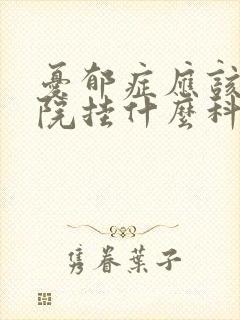 憂郁症應該
院挂什麼科
隽眷葉子